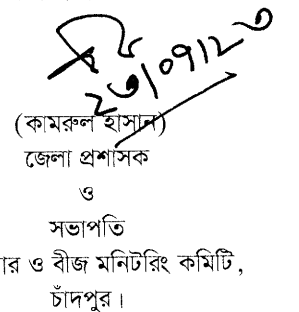 ২৩/০৭/২৩
(কামরুল হাসান)
জেলা প্রশাসক
ও
সভাপতি
ার ও বীজ মনিটরিং কমিটি,
চাঁদপুর।